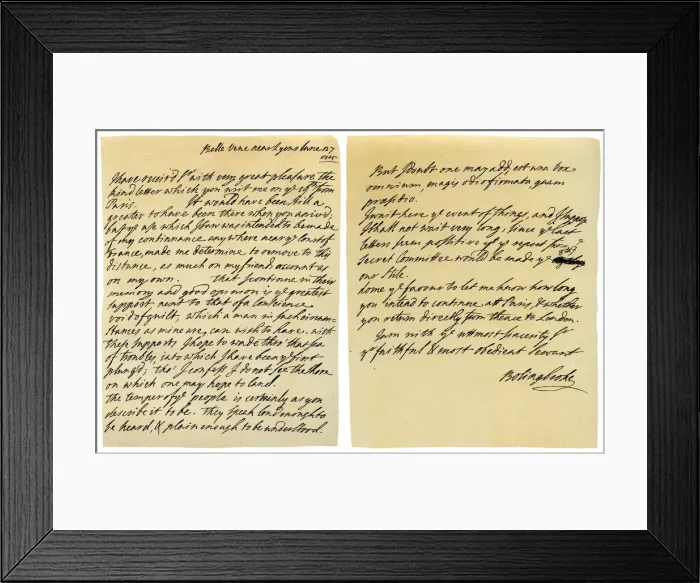 Belle Vene near Lyons June 27
I have receiv'd Sr with very great pleasure the
kind letter which you writ me on ye from
Paris. It would have been still a
greater to have been there when you arriv'd,
but ye use which I saw was intended to be made
of my continuance any where near ye Court of
France, made me determine to remove to this
distance, as much on my friends account as
on my own. that I continue in their
memory and good opinion is ye greatest
support next to that of a Conscience
void of guilt, which a man in such circum-
stances as mine are, can wish to have. with
these supports I hope to wade thro' that sea
of troubles, into which I have been ye first
plung'd; tho' I confess I do not see the shore
on which one may hope to land.
the temper of ye people is certainly as you
describe it to be. They speak loud enough to
be heard, & plain enough to be understood.
But I doubt one may add, est una vox
omnium, magis odio firmata quam
præsidio.
I wait here ye event of things, and I
I shall not wait very long, since ye last
letters seem positive yt ye report from ye
Secret Committee would be made ye
our Stile.
do me ye favour to let me know how long
you intend to continue att Paris, & whether
you return directly from thence to London.
I am with ye utmost sincerity Sr
yr faithful & most obedient servant
Bolingbroke